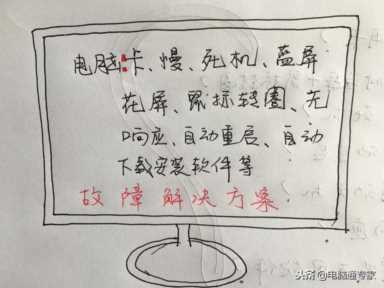 电脑:卡、慢、死机、蓝屏
花屏、鼠标转圈、无
响应、自动重启、自动
下载安装软件等
故障解决方案
头条@电脑通专家